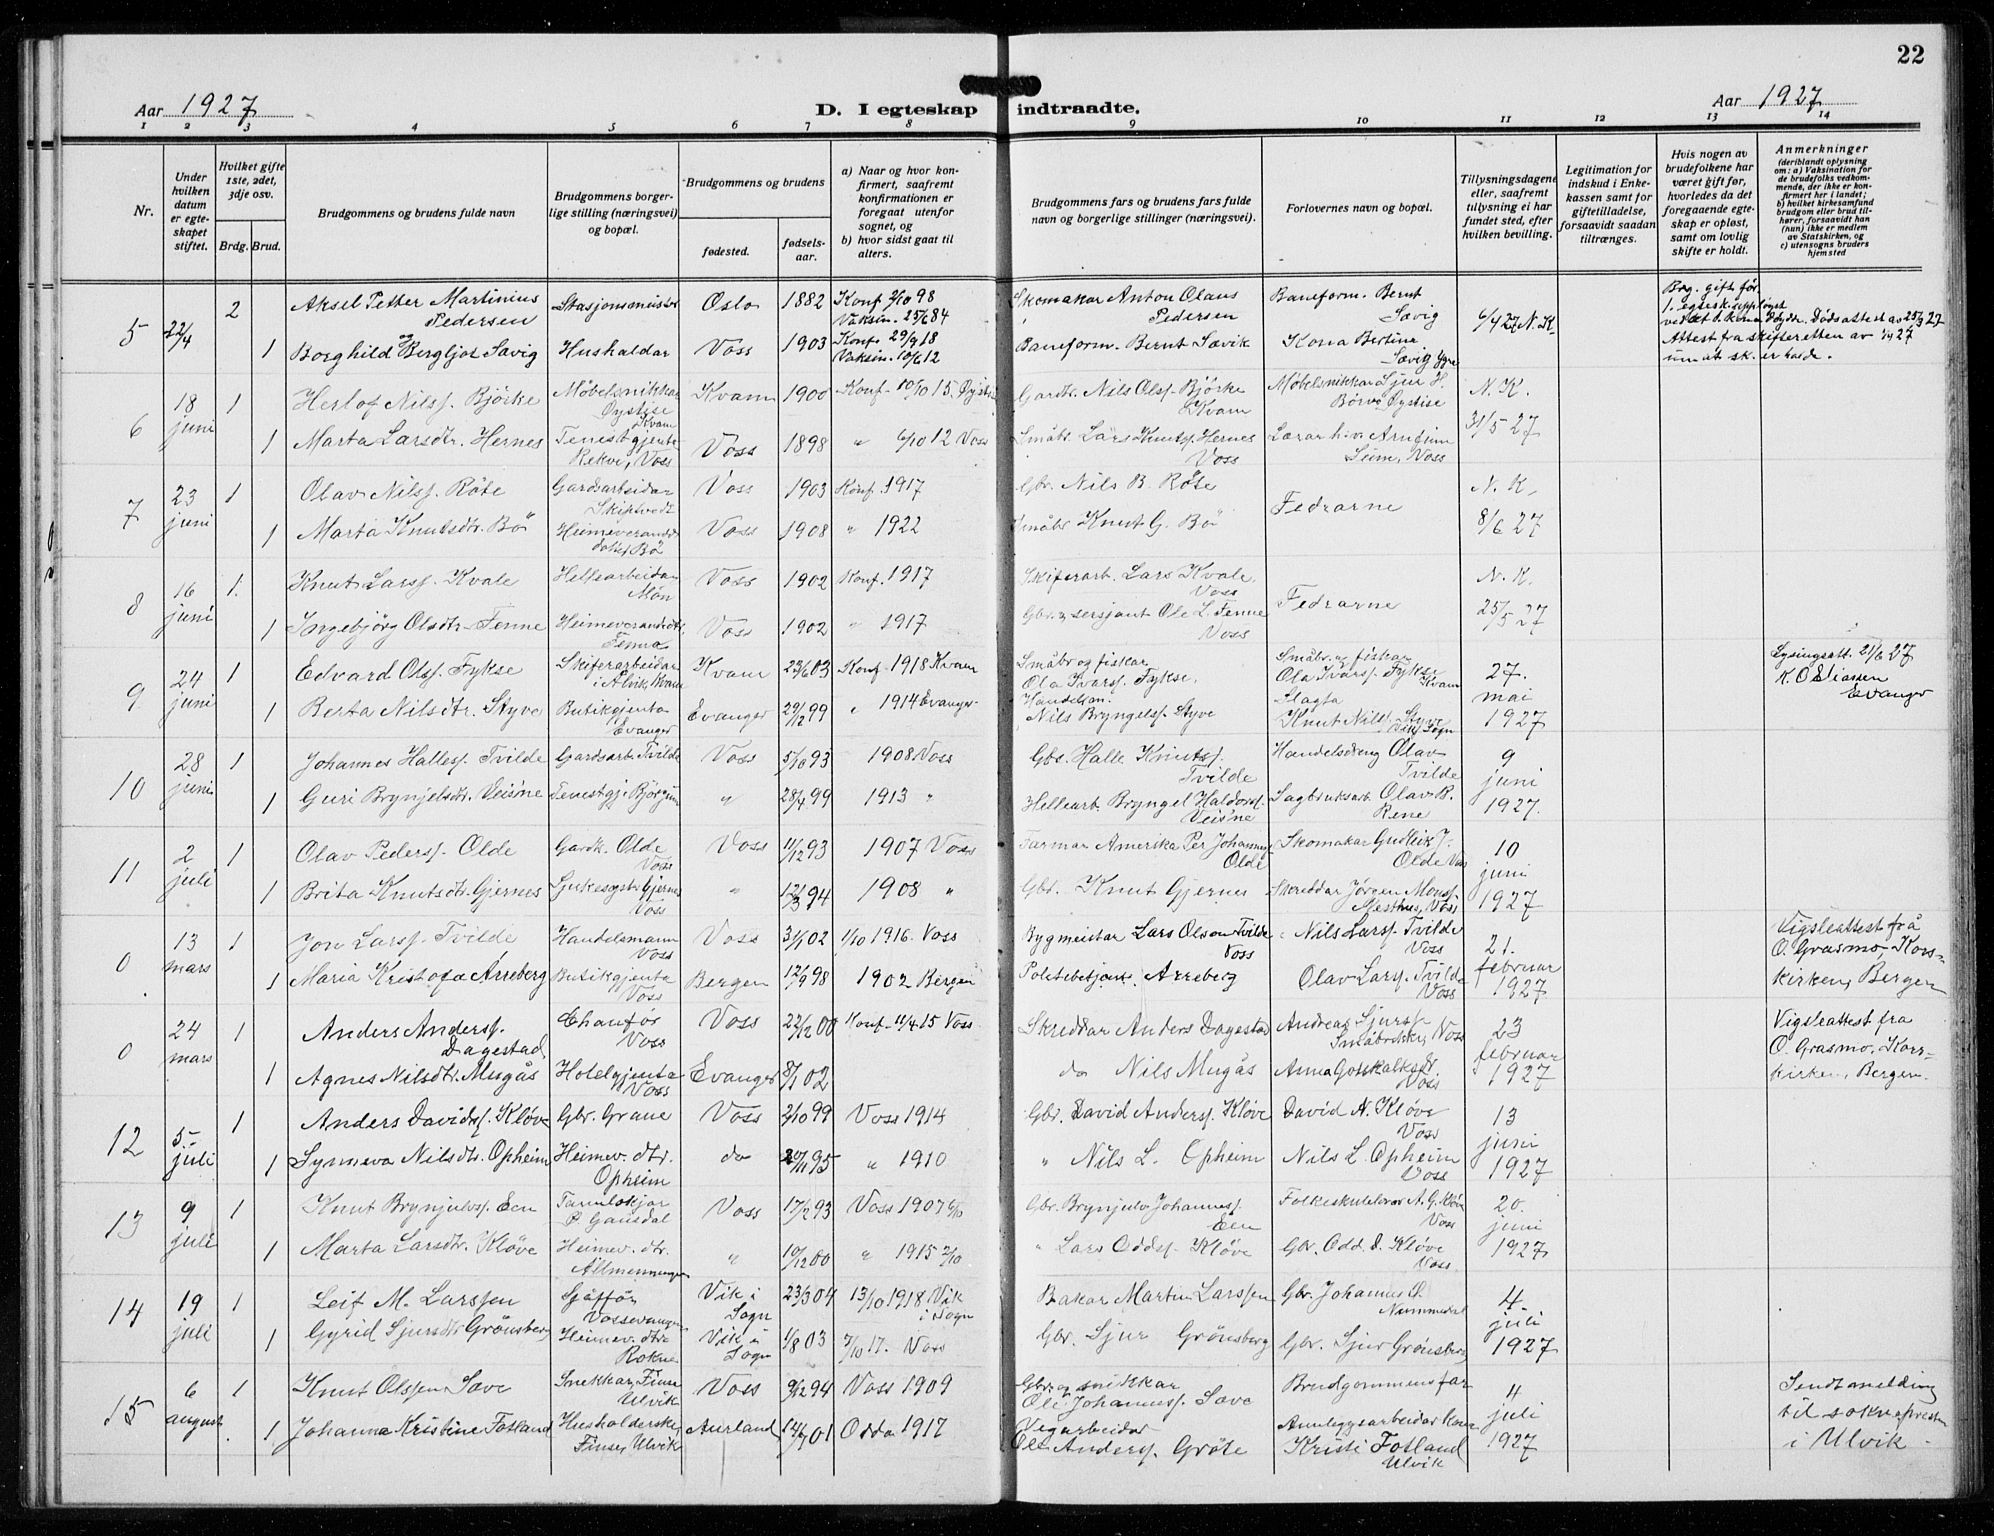 22
Aar 1927
D. I egteskap indtraadte.
Aar 1927
1 2 3 4 5 6 7 8 9 10 11 12 13 14
Nr.
Under hvilken datum er egteskapet stiftet.
Hvilket gifte 1ste, 2det, 3dje osv.
Brdg. Brud.
Brudgommens og brudens fulde navn
Brudgommens borgerlige stilling (næringsvei) og bopæl.
Brudgommens og brudens
fødested.
fødselsaar.
a) Naar og hvor konfirmert, saafremt konfirmationen er foregaat utenfor sognet, og
b) hvor sidst gaat til alters.
Brudgommens fars og brudens fars fulde navn og borgerlige stillinger (næringsvei).
Forlovernes navn og bopæl.
Tillysningsdagene eller, saafremt tillysning ei har fundet sted, efter hvilken bevilling.
Legitimation for indskud i Enkekassen samt for giftetilladelse, forsaavidt saadan tiltrænges.
Hvis nogen av brudefolkene har været gift før, hvorledes da det foregaaende egteskap er opløst, samt om lovlig skifte er holdt.
Anmerkninger
(deriblandt oplysning om: a) Vaksination for de brudefolks vedkommende, der ikke er konfirmert her i landet; b) hvilket kirkesamfund brudgom eller brud tilhører, forsaavidt han (hun) ikke er medlem av Statskirken, og c) utensogns bruders hjemsted
5 22/4 2 Aksel Petter Martinius Pedersen Stasjonsmeister Oslo 1882 Konf 2/10 98 Vaksin. 25/6 84 Skomakar Anton Olaus Pedersen Baneform. Bernt Sævig 6/4 27 N. K. Brg. gift før
1 Borghild Bergljot Sævig Hushaldar Voss 1903 Konf. 29/9 18 Vaksin. 10/6 12 Baneform. Bernt Sævik Kona Bertina Sævig
6 18 juni 1 Herlof Nilss. Bjørke Møbelsnikkar Øystise Kvam Kvam 1900 Konf. 10/10 15 Øystis Gardbr. Nils Olss. Bjørke Kvam Møbelsnikkar Sjur H. Børve, Øystise N. K. 31/5 27
1 Marta Larsdtr. Hernes Tenestgjenta Rekve, Voss Voss 1898 " 6/10 12 Voss Småbr. Lars Knutss. Hernes Voss Lærar Arnfinn Seim, Voss
7 23 juni 1 Olav Nilss. Røte Gardsarbeidar Skiptvedt Voss 1903 Konf. 1917 Gbr. Nils B. Røte Fedrarne N. K. 8/6 27
1 Marta Knutsdtr. Bø Heimeverande Bø Voss 1908 " 1922 Småbr Knut G. Bø
8 16 juni 1. Knut Larss. Kvale Hellearbeidar Møn Voss 1902 Konf. 1917 Skiferarb. Lars Kvale, Voss Fedrarne N. K. 25/5 27
1 Ingebjörg Olsdtr. Fenne Heimeverandtr. Fenne Voss 1902 " 1917 Gbr. & sersjant Ole L. Fenne Voss
9 24 juni 1 Edvard Olss. Fykse Skiferarbeidar i Ålvik, Kvam Kvam 23/6 03 Konf. 1918 Kvam Småbr og fiskar Ola Ivarss. Fykse. Småbr. og fiskar Ola Ivarss. Fykse, Kvam 27. mai 1927 Lysingsatt. 21/6 27 K. O. Eliassen Evanger
1 Berta Nilsdtr. Styve Butikgjenta Evanger Evanger 29/12 99 " 1914 Evanger Handelsm. Nils Bryngelss. Styve Knut Nilss. Styve
10 28 juni 1 Johannes Halless. Tvilde Gardsarb. Tvilde Voss 5/10 93 1908 Voss Gbr. Halle Knutss. Tvilde Handelsdreng Olav Tvilde 9 juni 1927.
1 Guri Brynjelsdtr. Veisne Tenestgj. Björgum " 28/4 99 1913 " Hellearb. Bryngel Haldorss. Veisne Sagbruksarb. Olav B. Rene
11 2 juli 1 Olav Pederss. Olde Gardk. Olde Voss Voss 11/12 93 1907 Voss Farmar Amerika Per Johanness Olde Skomakar Gudleik J. Olde Voss 10 juni 1927
1 Brita Knutsdtr. Gjernes Sjukesyst. Gjernes Voss " 12/3 94 1908 " Gbr. Knut Gjernes Skreddar Jørgen Monss. Mesthus, Voss
0 13 mars 1 Jon Larss. Tvilde Handelsmann Voss Voss 31/1 02 1/10 1916. Voss Bygmeistar Lars Olson Tvilde Voss Nils Larss. Tvilde Voss 21. februar 1927 Vigsleattest frå O. Grasmo, Korskirken, Bergen
1 Maria Kristofa Arreberg Butikgjenta Voss Bergen 12/9 98 1902 Bergen Politibetjent Arreberg Olav Larss. Tvilde Voss
0 24 mars 1 Anders Anderss. Dagestad, Chauför Voss Voss 22/12 00 Konf. 11/4 15 Voss. Skreddar Anders Dagestad Andreas Sjurss. Voss 23 februar 1927 Vigsleattest fra O. Grasmo, Korskirken, Bergen.
1 Agnes Nilsdtr. Mugås Hotelgjenta Voss Evanger 8/1 02 do Nils Mugås Anna Gotskalksd. Voss
12 5 juli 1 Anders Davidss. Kløve Gbr. Grane Voss 2/10 99 Voss 1914 Gbr. David Anderss. Kløve David A. Kløve Voss 13 juni 1927
1 Synneva Nilsdtr. Opheim Heimev. dtr. Opheim do 20/11 95 " 1910 " Nils L. Opheim Nils L. Opheim Voss
13 9 juli 1 Knut Brynjulvss. Een Ø. Gausdal Voss 17/2 93 Voss 1907 6/10 Gbr. Brynjulv Johanness. Een Folkeskulelærar A. G. Kløve Voss 20. juni 1927
1 Marta Larsdtr. Kløve Heimev. dtr. Allmenningen " 19/12 00 " 1915 2/10 " Lars Oddss. Kløve Gbr. Odd D. Kløve Voss.
14 19 juli 1 Leif M. Larssen Sjåffør Vossevangen Vik i Sogn 23/3 04 13/10 1918 Vik i Sogn Bakar Martin Larssen Gbr. Johannes O. Nummedal 4. juli 1927
1 Gyrid Sjursdtr Grønsberg Heimev. dtr. Rokne Vik i Sogn 1/8 03 7/10 17. Voss Gbr. Sjur Grønsberg Gbr. Sjur Grønsberg
15 6 august 1 Knut Olssen Sæve Snekkar, Finse Ulvik Voss 9/12 94 Voss 1909 Gbr. og snikkar Ole Johanness. Sæve Brudgommens far 4 juli 1927 Sendt melding til soknepresten i Ulvik
1 Johanna Kristine Fotland Husholderske, Finse, Ulvik Aurland 14/7 01 Odda 1917 Vegarbeidar Ole Anderss. Grøte Annleggsarbeidar kona Kristi Fotland Ulvik